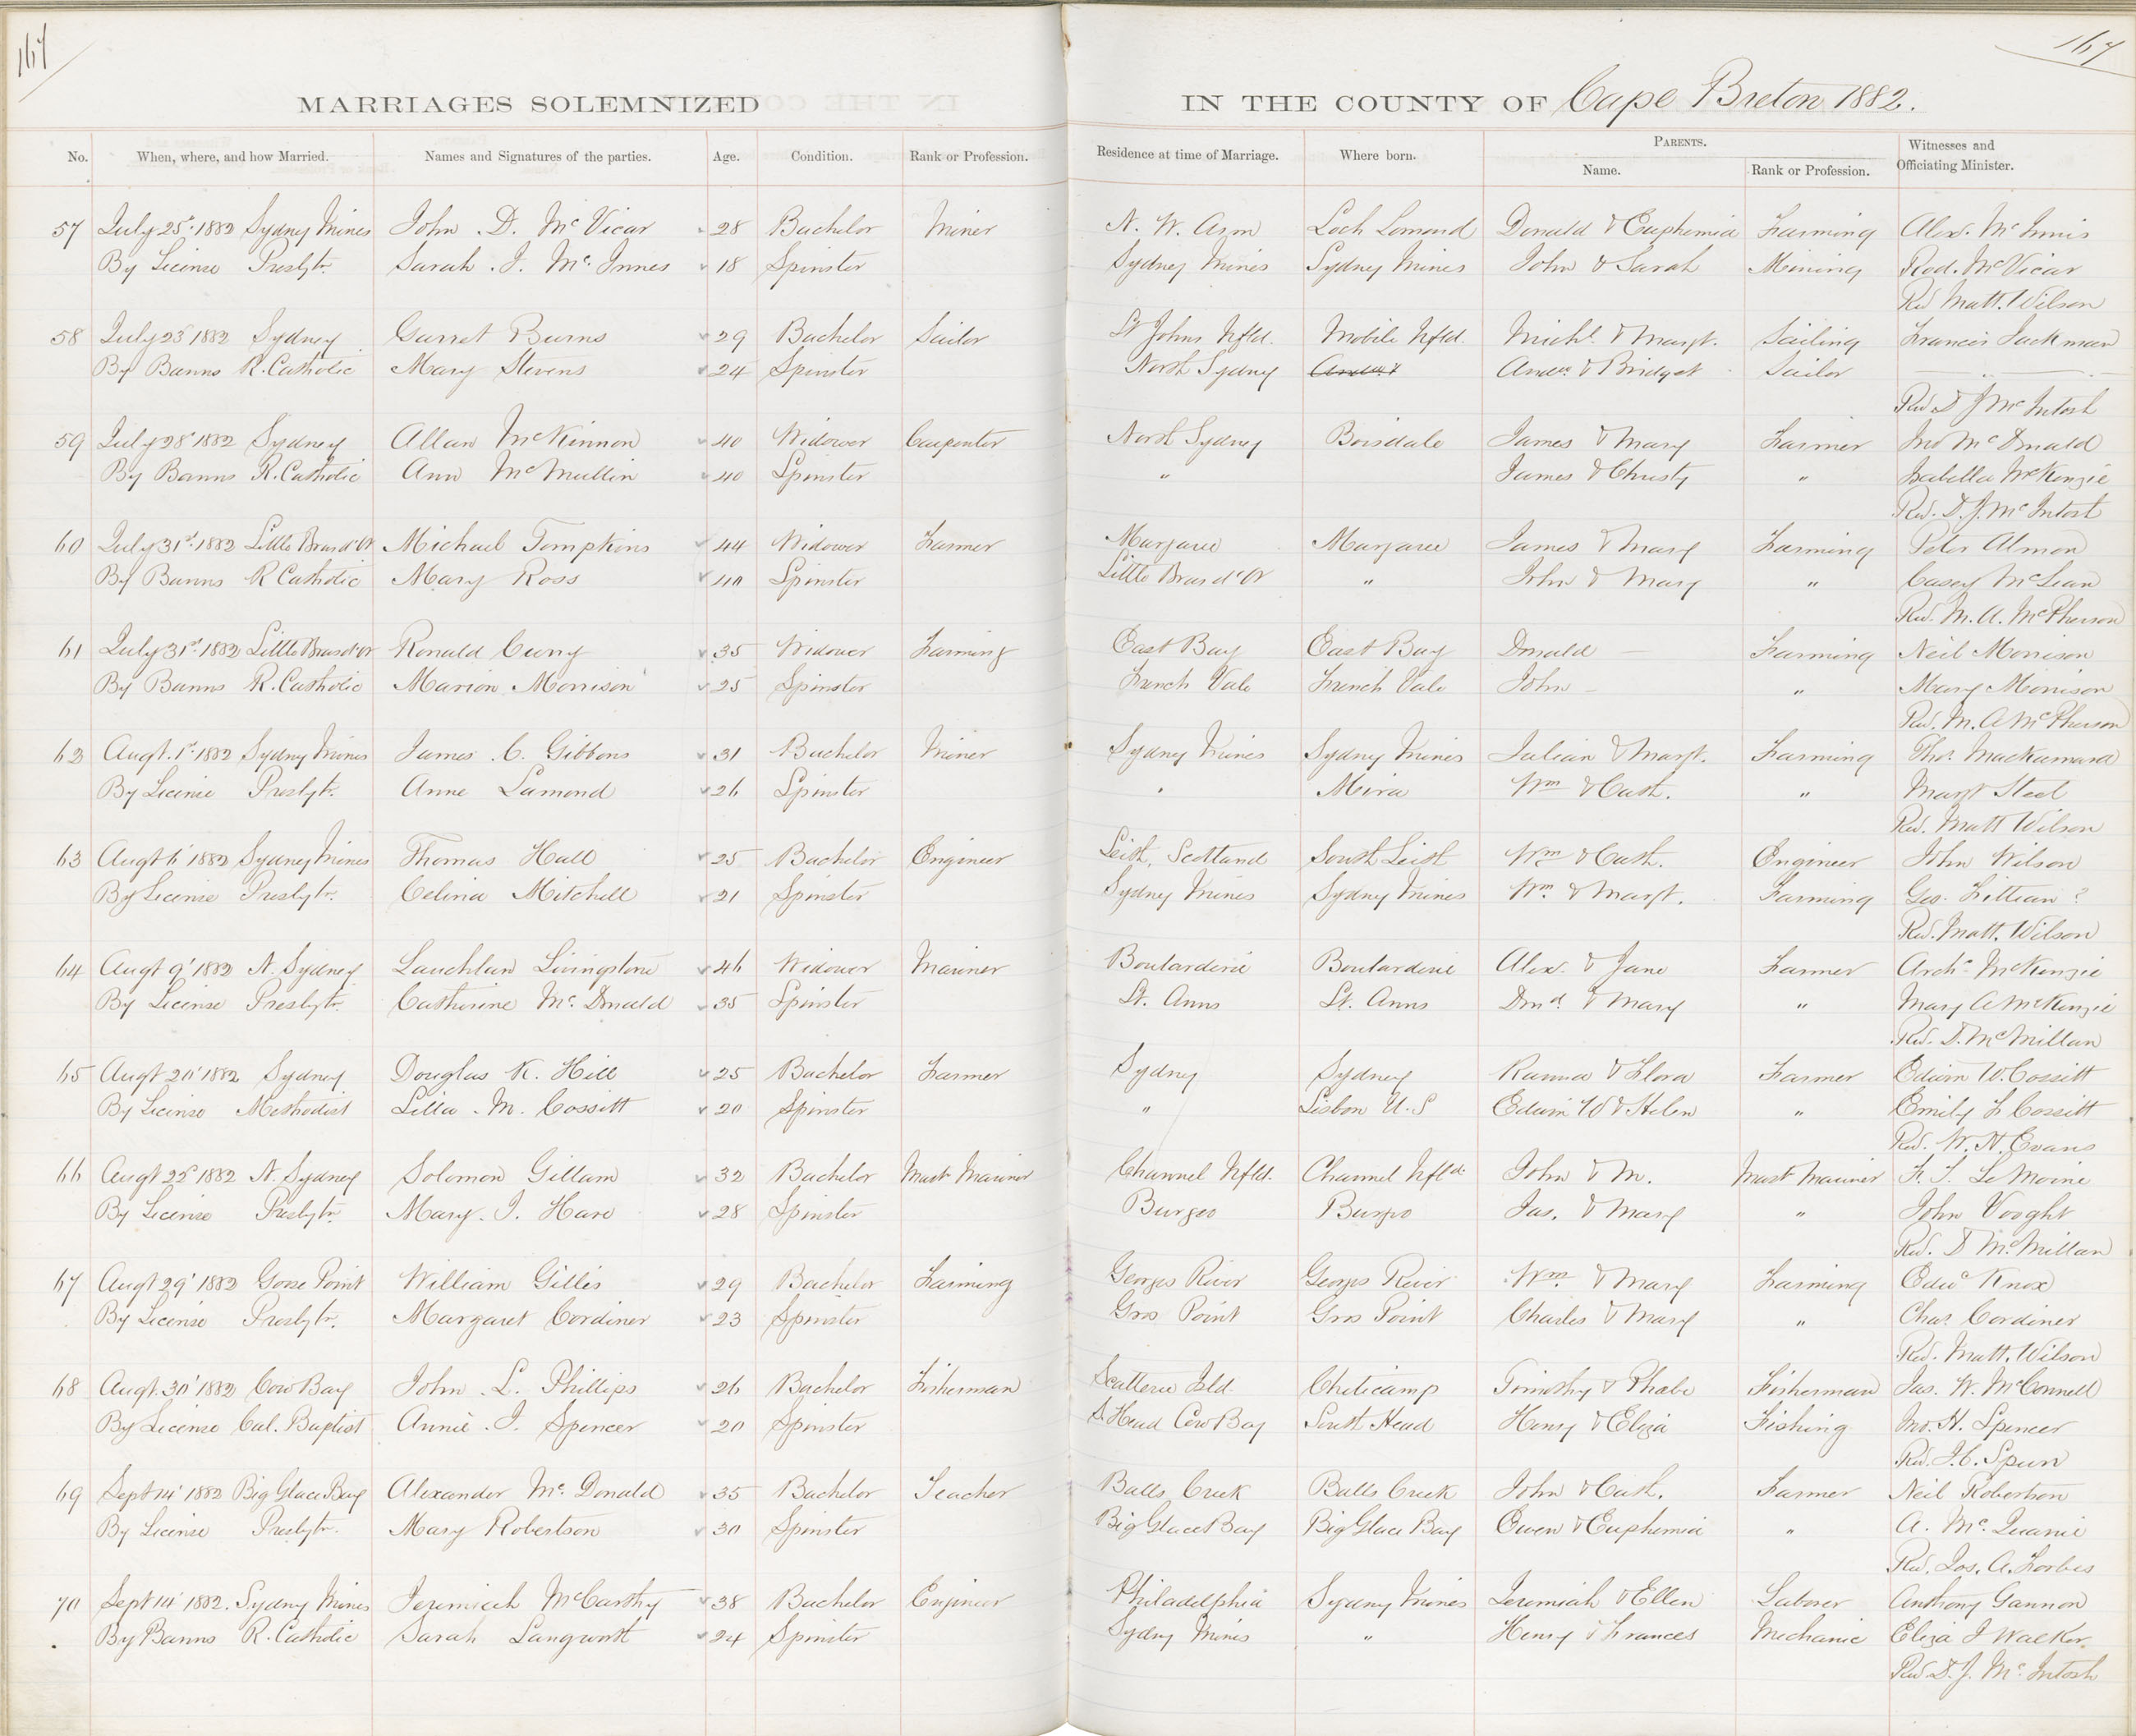 167
167
MARRIAGES SOLEMNIZED IN THE COUNTY OF Cape Breton 1882.
No. When, where, and how Married. Names and Signatures of the parties. Age. Condition. Rank or Profession. Residence at time of Marriage. Where born. PARENTS. Witnesses and Officiating Minister.
Name. Rank or Profession.
57 July 25 1882 Sydney Mines John D. McVicar 28 Bachelor Miner N. W. Arm Loch Lomond Donald & Euphemia Farming Alex. McInnis
By License Presbytr. Sarah J. McInnes 18 Spinster Sydney Mines Sydney Mines John & Sarah Mining Rod. McVicar
Rev Matt. Wilson
58 July 23 1882 Sydney Garret Burns 29 Bachelor Sailor St Johns Nfld. Mobile Nfld. Michl. & Margt. Sailing Francis Jackman
By Banns R. Catholic Mary Stevens 24 Spinster North Sydney Andw. & Bridget Sailor
Rev. D J McIntosh
59 July 28 1882 Sydney Allan McKinnon 40 Widower Carpenter North Sydney Boisdale James & Mary Farmer Jno McDonald
By Banns R. Catholic Ann McMullin 40 Spinster " James & Christy " Isabella McKenzie
Rev. D. J. McIntosh
60 July 31st 1882 Little Bras d'Or Michael Tompkins 44 Widower Farmer Margaree Margaree James & Mary Farming Peter Almon
By Banns R Catholic Mary Ross 40 Spinster Little Bras d'Or " John & Mary " Casey McLean
Rev. M. A. McPherson
61 July 31st 1882 Little Bras d'Or Ronald Curry 35 Widower Farming East Bay East Bay Donald Farming Neil Morrison
By Banns R. Catholic Marion Morrison 25 Spinster French Vale French Vale John " Mary Morrison
Rev. M. A McPherson
62 Augt. 1st 1882 Sydney Mines James C. Gibbons 31 Bachelor Miner Sydney Mines Sydney Mines Julian & Margt. Farming Thos.
By License Presbytr. Anne Lamond 26 Spinster " Mira Wm & Cath. " Margt Steel
Rev. Matt Wilson
63 Augt 6 1882 Sydney Mines Thomas Hall 25 Bachelor Engineer Leith, Scotland South Leith Wm & Cath. Engineer John Wilson
By License Presbytr. Celina Mitchell 21 Spinster Sydney Mines Sydney Mines Wm. & Margt. Farming Geo. Littian ?
Rev. Matt. Wilson
64 Augt 9 1882 N. Sydney Lauchlan Livingstone 46 Widower Mariner Boularderie Boularderie Alex. & Jane Farmer Archd. McKenzie
By License Presbytr. Catherine McDonald 35 Spinster St. Anns St. Anns Dond. & Mary " Mary A McKenzie
Rev. D. McMillan
65 Augt 20 1882 Sydney Douglas K. Hill 25 Bachelor Farmer Sydney Sydney & Flora Farmer Edwin W. Cossitt
By License Methodist Lilla M. Cossitt 20 Spinster " Lisbon U.S Edwin W & Helen " Emily F Cossitt
Rev. W. H. Evans
66 Augt 22 1882 N. Sydney Solomon Gillam 32 Bachelor Mast Mariner Channel Nfld. Channel Nfld. John & M. Mast Mariner F. J. LeMoine
By License Presbytr. Mary J. Hare 28 Spinster Burgeo Burgeo Jas. & Mary " John Vooght
Rev. D McMillan
67 Augt 29 1882 Goose Point William Gillis 29 Bachelor Farming Georges River Georges River Wm & Mary Farming Edwd Knox
By License Presbytr. Margaret Cordiner 23 Spinster Gros Point Gros Point Charles & Mary " Chas. Cordiner
Rev. Matt. Wilson
68 Augt. 30 1882 Cow Bay John L. Phillips 26 Bachelor Fisherman Scatterie Isld. Cheticamp Timothy & Phabe Fisherman Jas. W. McConnell
By License Cal. Baptist Annie J. Spencer 20 Spinster S. Head Cow Bay South Head Henry & Eliza Fishing Jno. H. Spencer
Rev. J. C. Spurr
69 Sept 14 1882 Big Glace Bay Alexander McDonald 35 Bachelor Teacher Balls Creek Balls Creek John & Cath. Farmer Neil Robertson
By License Presbytr. Mary Robertson 30 Spinster Big Glace Bay Big Glace Bay Owen & Euphemia " A. McQuarrie
Rev. Jos. A. Forbes
70 Sept 14 1882. Sydney Mines Jeremiah McCarthy 38 Bachelor Engineer Philadelphia Sydney Mines Jeremiah & Ellen Laborer Anthony Gannon
By Banns R. Catholic Sarah Langworth 24 Spinster Sydney Mines " Henry & Frances Mechanic Eliza J Walker
Rev D. J. McIntosh